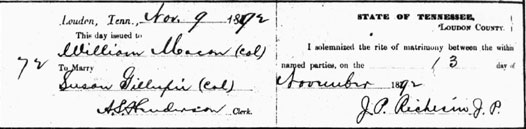 Loudon, Tenn., Nov. 9 1892
This day issued to
William Mason (Col)
72
To Marry
Susan Gillespie (Col)
A.S. Henderson Clerk.
STATE OF TENNESSEE,
LOUDON COUNTY.
I solemnized the rite of matrimony between the within
named parties, on the 13 day of
November 1892
J.P. Richesin J.P.